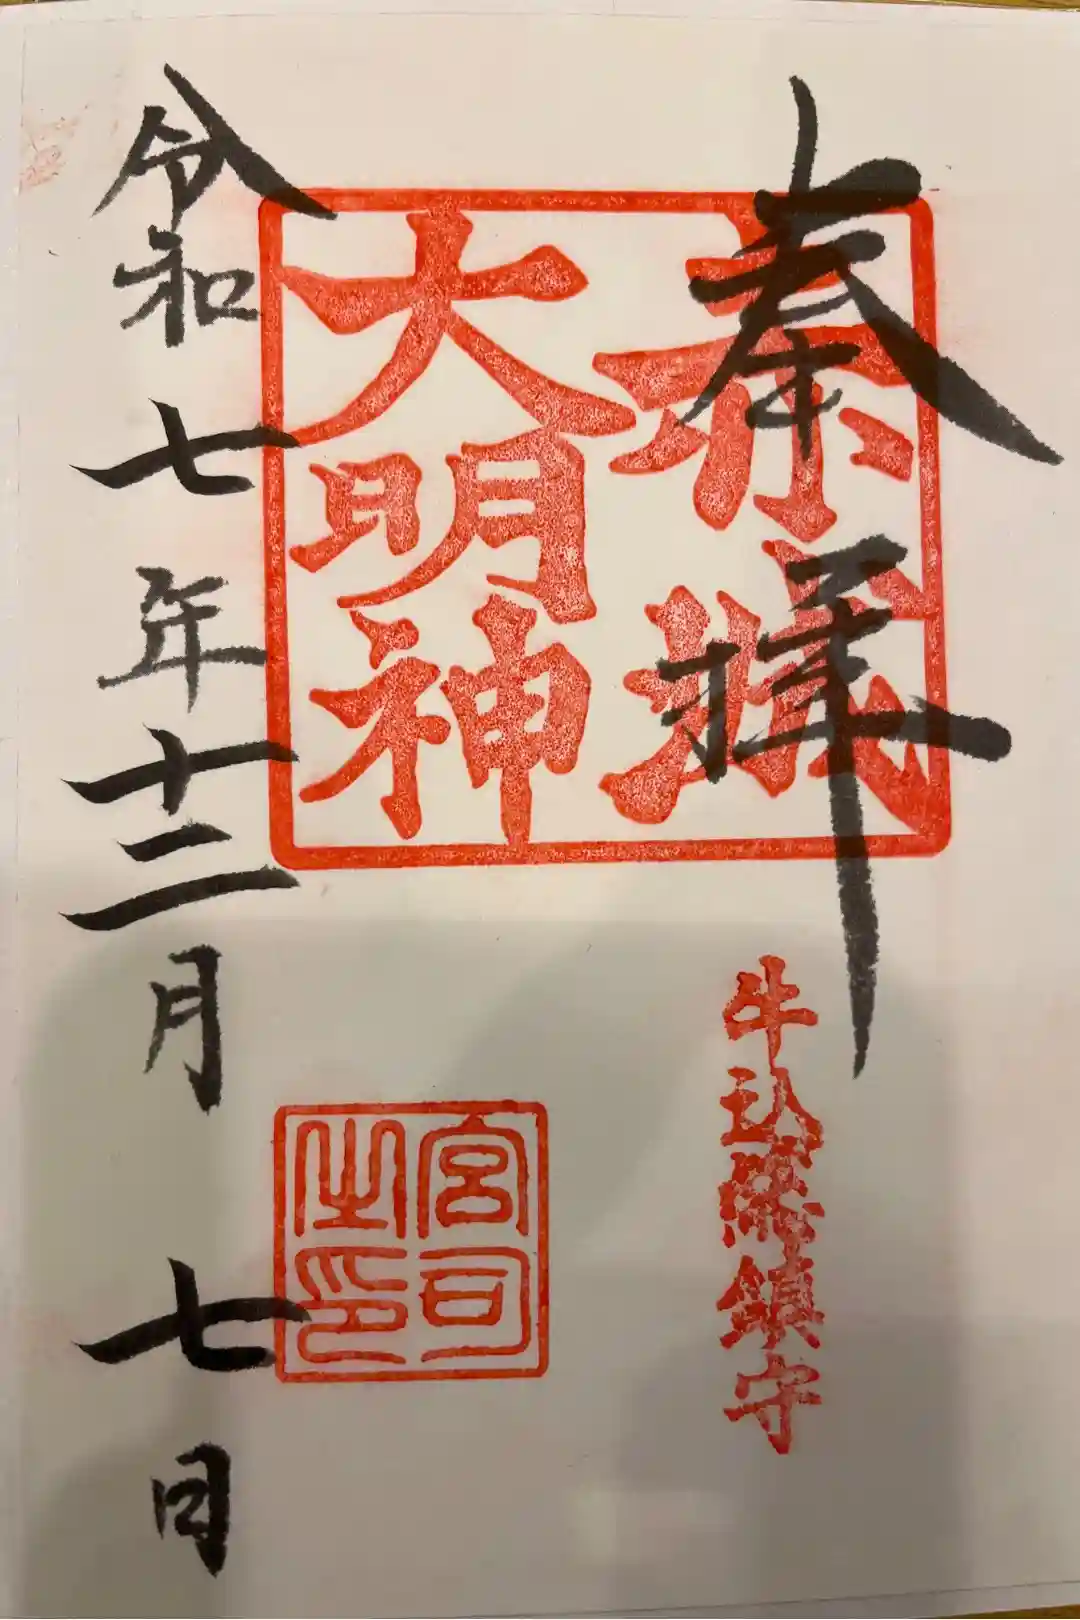 奉拝
赤城
大明神
牛込総鎮守
宮司
之印
令和七年十二月七日